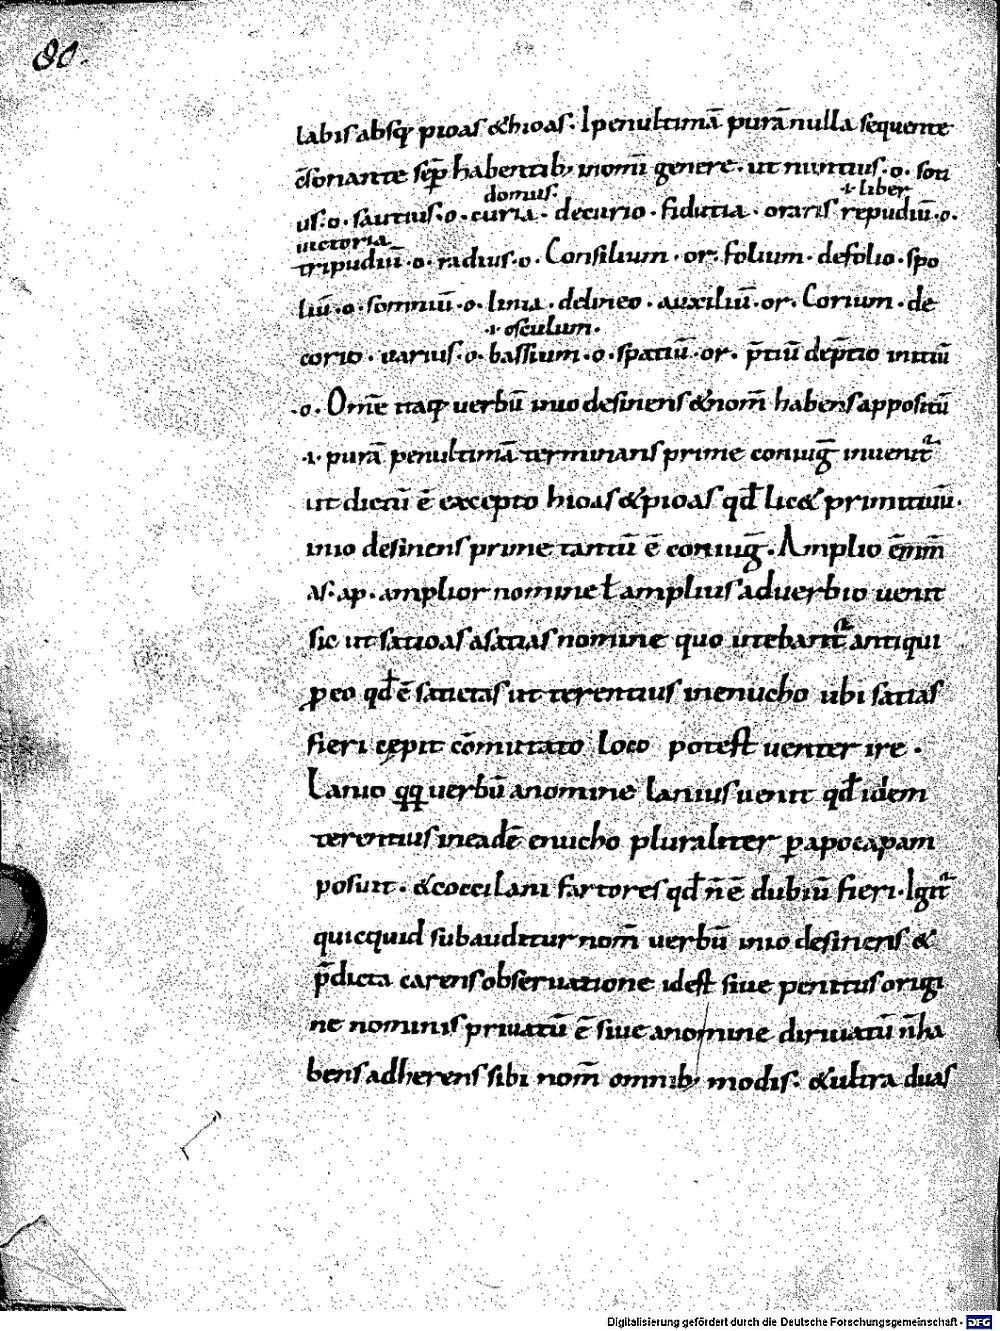 80.
labis absq; pioas & hioas. l penultimā purā nulla sequente
c̄sonante sep̄ habentib; inom̄i genere. ut nuntius .o. soti
domus. .i. liber
us .o. sautius .o. curia. decurio. fidutia. oraris repudiū .o.
uictoria
tripudiū .o. radius .o. Consilium. or. folium. defolio. spo
liū .o. somniū .o. linia. delineo. auxiliū. or. Corium. de
.i. osculum.
corio. uarius .o. bassium .o. spatiū. or. p̄tiū dep̄tio initiū
.o. Om̄e itaq; uerbū inio desinens & nom̄ habens appositū
.i. purā penultimā terminaris prime coniuḡ inuenit̄
ut dictū ē excepto hioas & pioas qđ lic& primitiuū.
inio desinens prime tantū ē coniuḡ. Amplio enim̄
as. ap. amplior nomine ł amplius aduerbio uenit
sic ut satioas asatias nomine quo utebant̄ antiqui
p̱eo qđ ē satietas ut terentius ineuucho ubi satias
fieri cępit cōmutato loco potest uenter ire.
Lanio qq; uerbū anomine lanius uenit qđ idem
terentius ineadē enuicho pluraliter p̱ apocapam
posuit. & cocci lani fartores qđ n̄ ē dubiū fieri. lgit̄
quicquid subauditur nom̄ uerbū inio desinens &
p̄dicta carens obseruatione idest siue penitus origi
ne nominis priuatū ē siue anomine diriuatū n̄ ha
bens adherens sibi nom̄ omnib; modis. & ultra duas
Digitalisierung gefördert durch die Deutsche Forschungsgemeinschaft - DFG